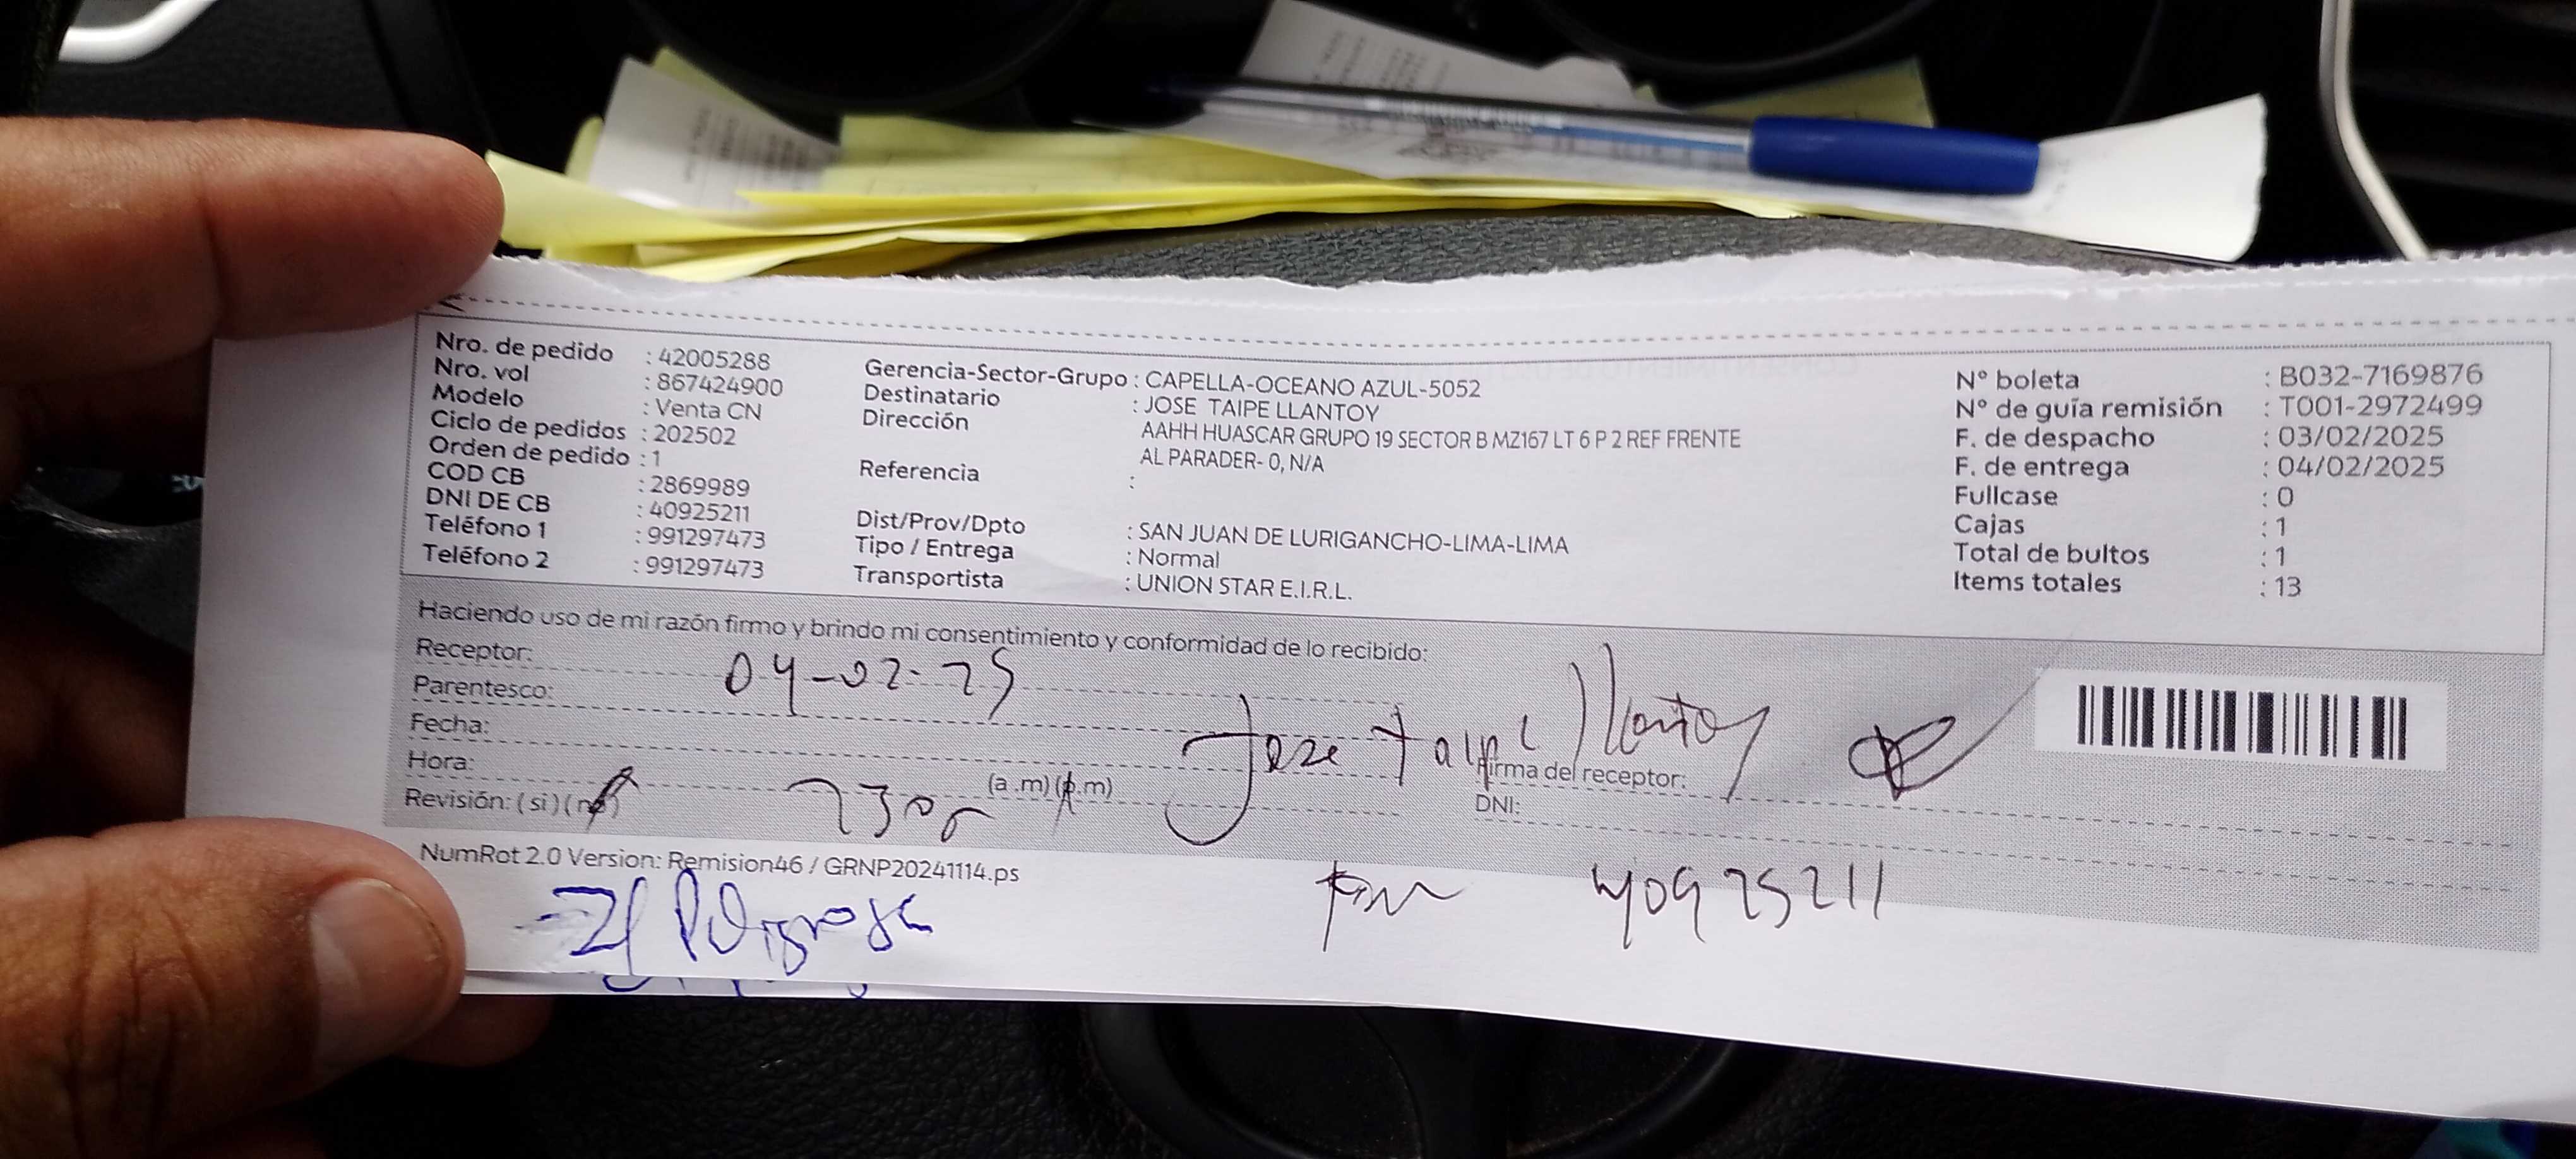 Nro. de pedido : 42005288
Nro. vol : 867424900
Modelo : Venta CN
Ciclo de pedidos : 202502
Orden de pedido : 1
COD CB : 2869989
DNI DE CB : 40925211
Teléfono 1 : 991297473
Teléfono 2 : 991297473
Gerencia-Sector-Grupo : CAPELLA-OCEANO AZUL-5052
Destinatario : JOSE TAIPE LLANTOY
Dirección AAHH HUASCAR GRUPO 19 SECTOR B MZ167 LT 6 P 2 REF FRENTE
AL PARADER- 0, N/A
Referencia :
Dist/Prov/Dpto : SAN JUAN DE LURIGANCHO-LIMA-LIMA
Tipo / Entrega : Normal
Transportista : UNION STAR E.I.R.L.
N° boleta : B032-7169876
N° de guía remisión : T001-2972499
F. de despacho : 03/02/2025
F. de entrega : 04/02/2025
Fullcase : 0
Cajas : 1
Total de bultos : 1
Items totales : 13
Haciendo uso de mi razón firmo y brindo mi consentimiento y conformidad de lo recibido:
Receptor:
04-02-25
Parentesco:
Fecha:
Jose Taipe Llantoy
Hora: (a.m) (p.m)
Firma del receptor:
Revisión: ( si ) ( no )
DNI:
40925211
NumRot 2.0 Version: Remision46 / GRNP20241114.ps